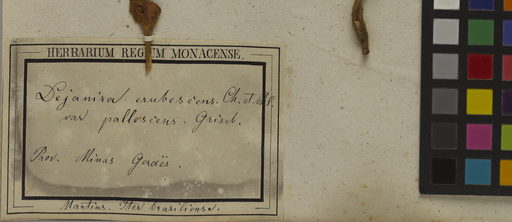 HERBARIUM REGIUM MONACENSE.
Dejanira erubescens. Ch. et Schl.
var pallescens. Griseb.
Prov. Minas Geraës.
Martius. Iter brasiliense.